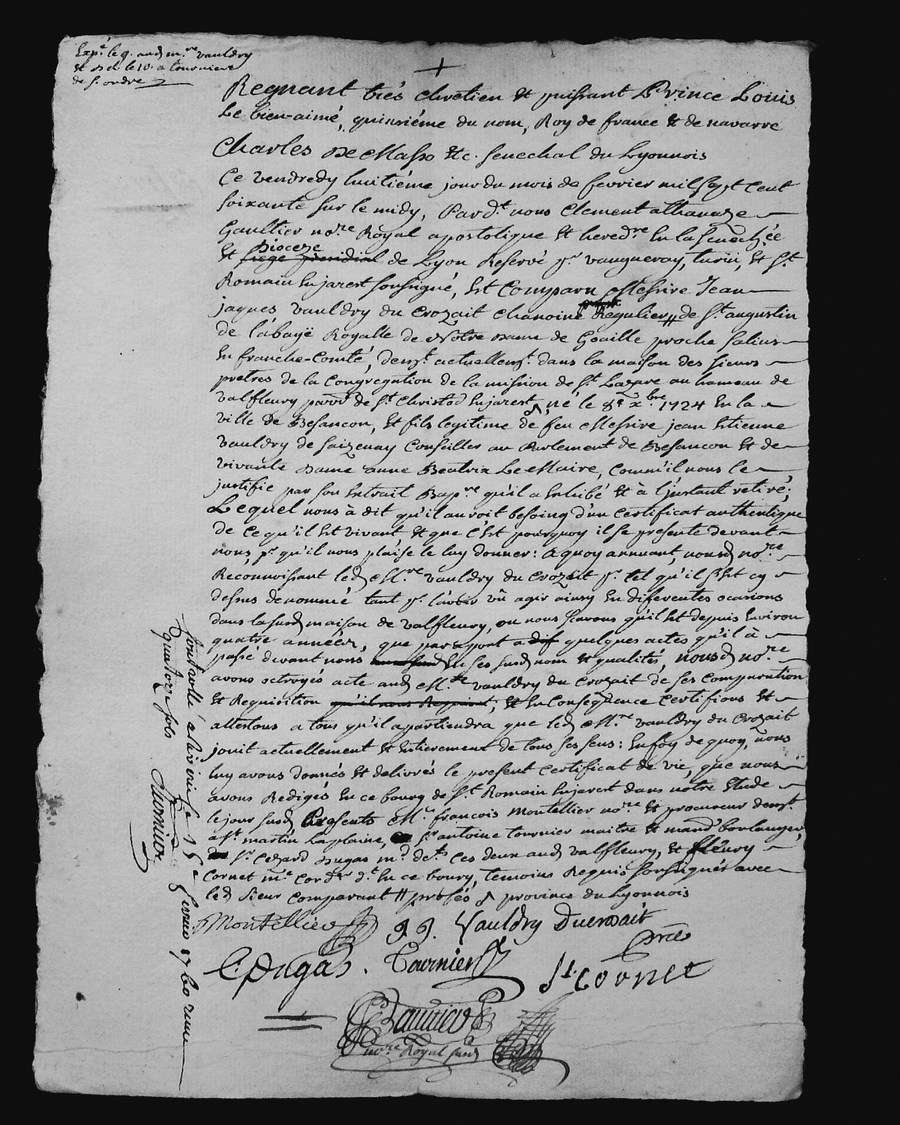 Exp.é le 9. aud m.re vauldry
Et le 10. a tournier
de s. ordre
Regnant trés chrétien Et puissant Prince Louis
Le bien-aimé, quinziéme du nom, Roy de france Et de navarre
Charles De Masso Etc. senechal du Lyonnois
Ce vendredy huitiéme jour du mois de fevrier mil sept cent
soixante sur le midy, Pard.t nous Clement athanaze
Gaultier no.re Royal apostolique Et hered.re En la senechée
Dioceze
Et siege presidial de Lyon Reservé p.r vaugneray, turin, Et s.t
Romain En jarest soussigné, Est Comparu Messire Jean
jaques vauldry du Crozait Chanoine Regulier de s.t augustin
de l'abayë Royalle de Notre dame de Goaille proche salins
En franche-Comté, dem.t actuellem.t dans la maison des sieurs
prêtres de la Congregation de la mission de s.t Lazare au hameau de
valfleury parr.e de s.t Christo En jarest, né le 8.e x.bre 1724 En la
ville de Besancon, Et fils legitime de feu Messire jean Etienne
vauldry de saizenay Conseiller au Parlement de Besancon Et de
vivante Dame anne Beatrix Le Maire, Comm'il nous le
justifie par son Extrait Bap.re qu'il a Exhibé Et à l'instant retiré;
Lequel nous à dit qu'il auroit besoing d'un Certificat authentique
de ce qu'il Est vivant Et que c'Est pourquoy il se presente devant
nous, p.r qu'il nous plaise le luy donner: a quoy annuant, nousd no.re
Reconnoissant led M.re vauldry du Crozait p.r tel qu'il s'Est cy
dessus denommé tant p.r l'avoir vû agir ainsy En differentes ocasions
dans la susd maison de valfleury, ou nous scavons qu'il Est depuis Environ
quatre années, que par raport a quelques actes qu'il à
passé devant nous En ses susd nom Et qualités, nousd no.re
avons octroyes acte aud M.re vauldry du Crozait de ses Comparution
Et Requisition qu'il nous Requiert, Et En Conseq̃uence Certifions Et
attestons a tous qu'il apartiendra que led M.re vauldry du Crozait
jouit actuellement Et Entierement de tous ses sens: En foy de quoy, nous
luy avons donnés Et delivrés le present Certificat de vie, que nous
avons Redigés En ce bourg de s.t Romain En jarest dans notre Etude
le jour susd Presents M.e francois Montellier no.re Et procureur dem.t
a s.t martin la plaine, s.r antoine tournier maitre Et mand boulanger,
s.r Cezard Dugas m.d de.t Ces deux aud valfleury, Et fleury
Cornet m.e Cord.er d.t En ce bourg, temoins Requis soussignés avec
led sieur Comparant // profés province du Lyonnois
Montellier J J. Vauldry Ducrozait
C. Dugas. Tournier f. Cornet
Gaultier
no.re Royal susd
Controllé a le 15e fevrier 1760 recu
quatorze sols